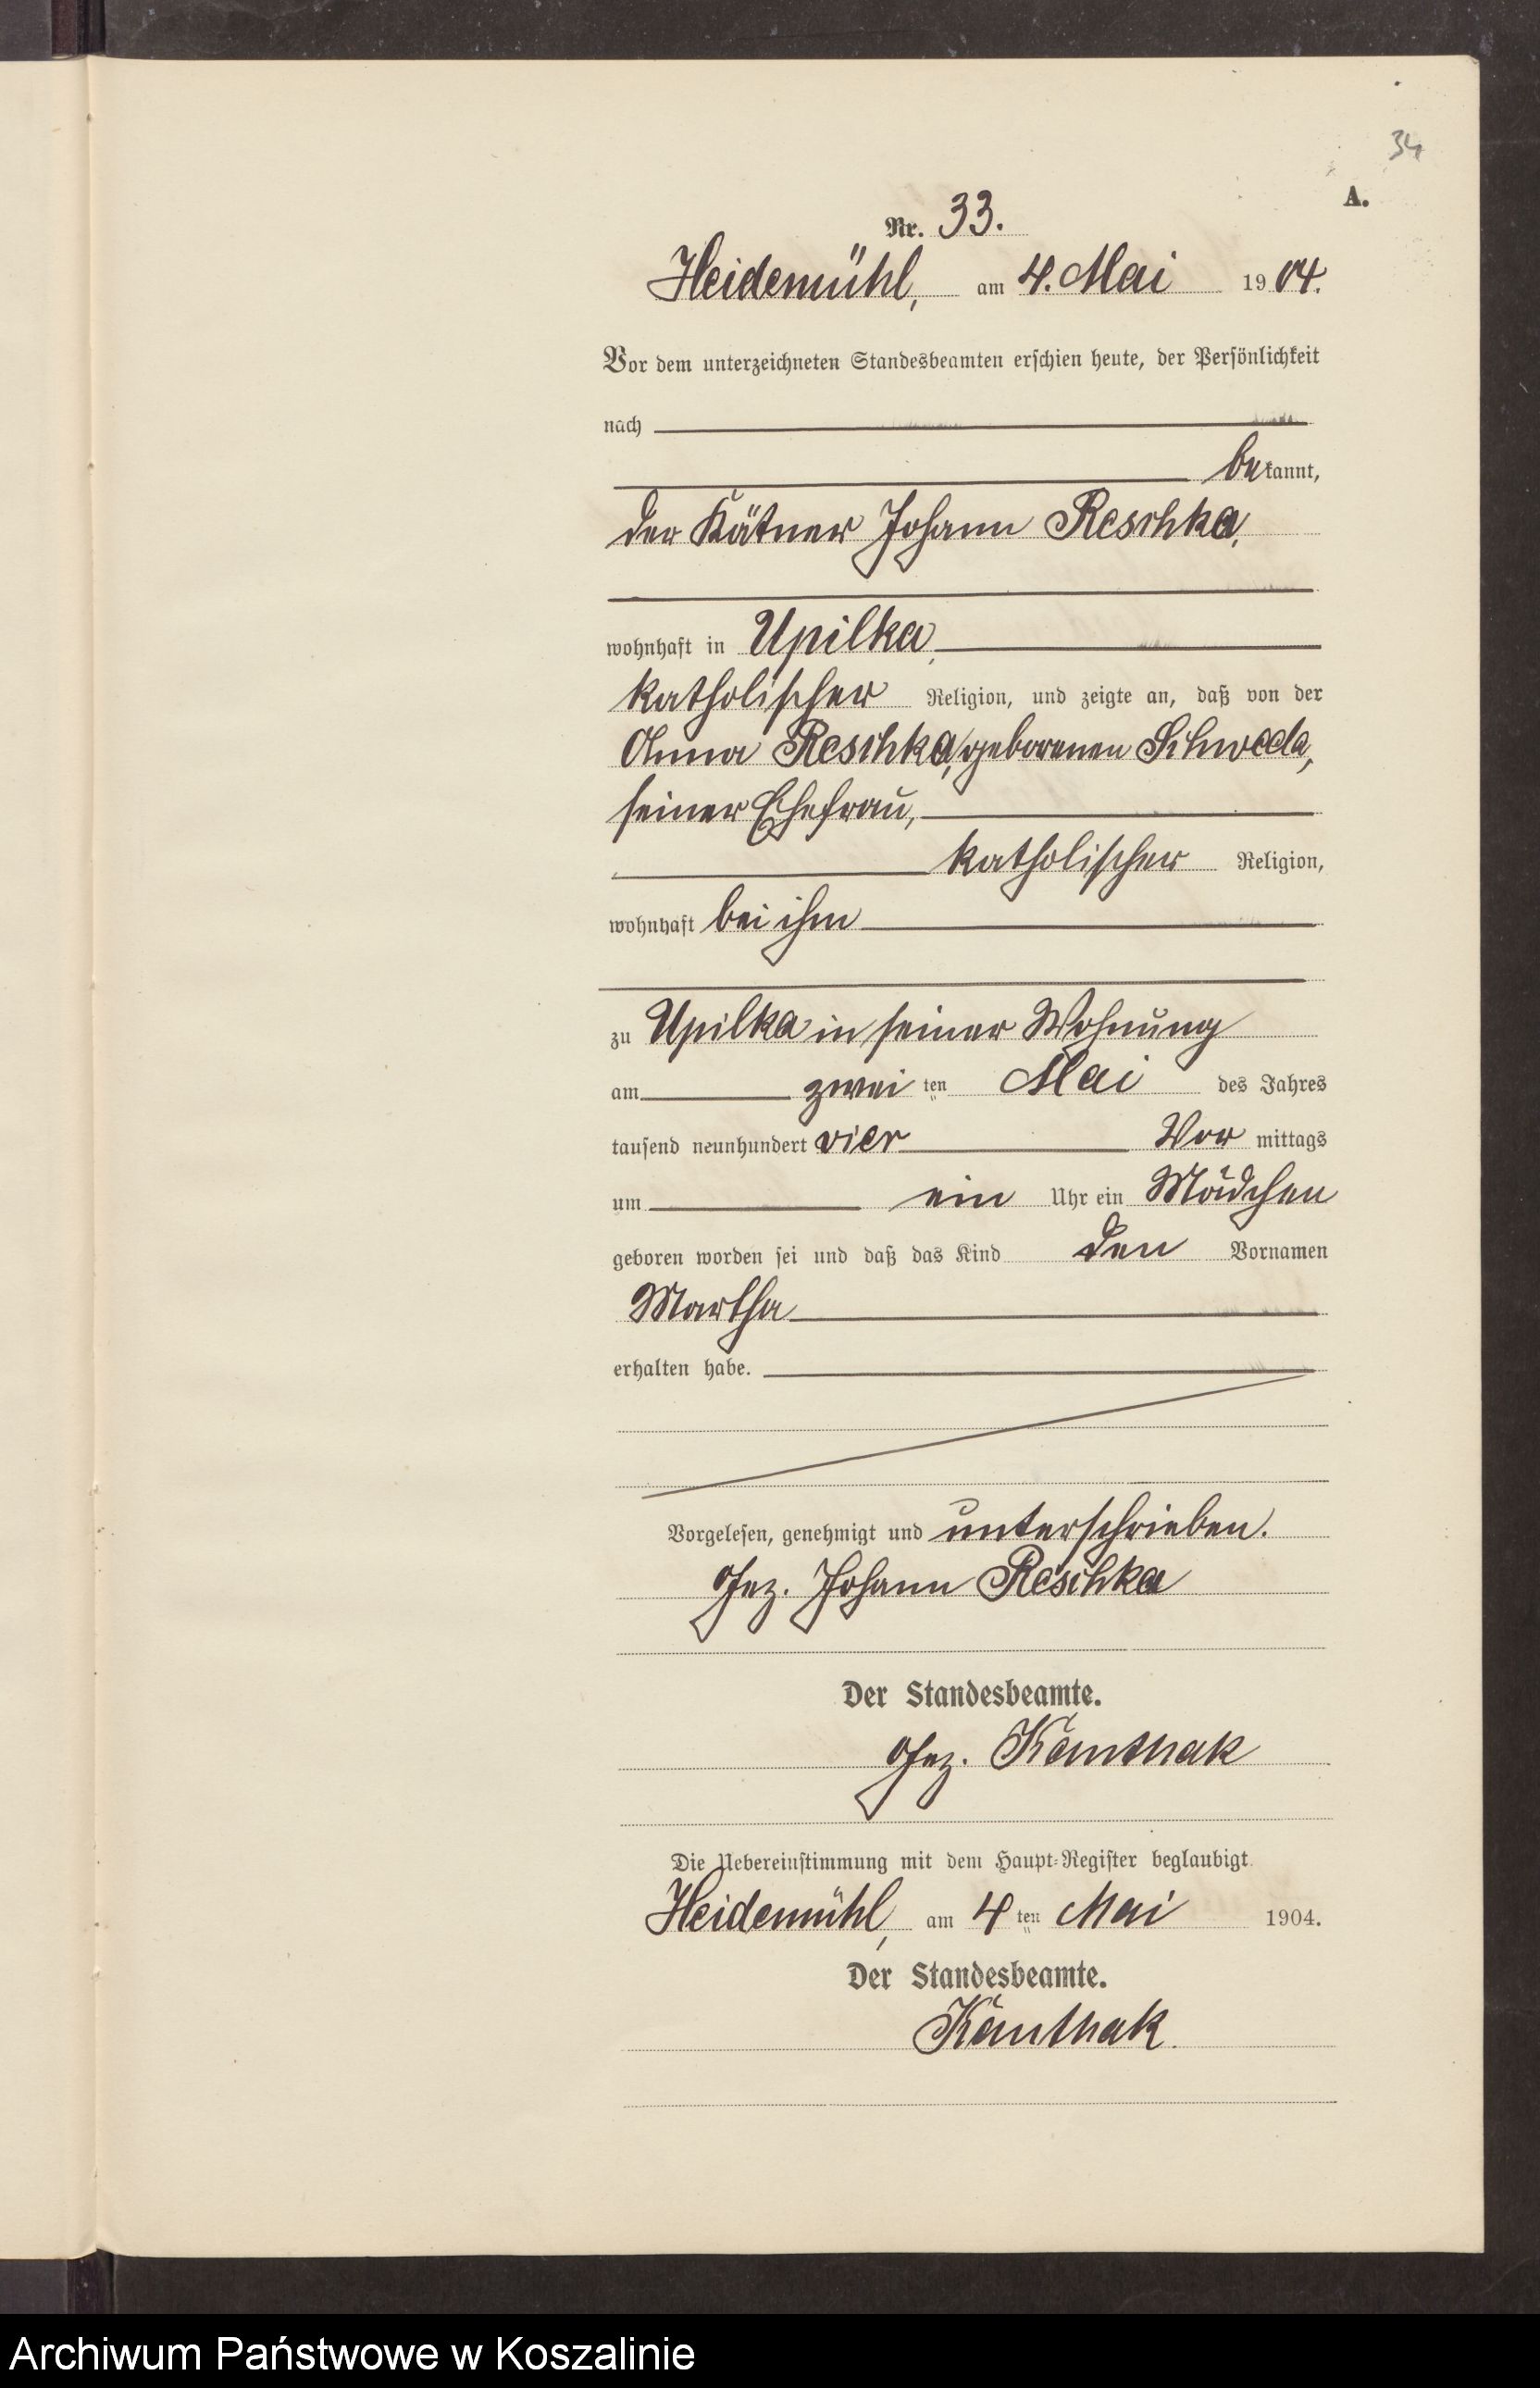 34
A.
Nr. 33.
Heidemühl, am 4. Mai 1904.
Vor dem unterzeichneten Standesbeamten erschien heute, der Persönlichkeit
nach
bekannt,
der Kätner Johann Reschka,
wohnhaft in Upilka,
katholischer Religion, und zeigte an, daß von der
Anna Reschka, geborenen Schweda,
seiner Ehefrau,
katholischer Religion,
wohnhaft bei ihm
zu Upilka in seiner Wohnung
am zweiten Mai des Jahres
tausend neunhundert vier Vormittags
um ein Uhr ein Mädchen
geboren worden sei und daß das Kind den Vornamen
Martha
erhalten habe.
Vorgelesen, genehmigt und unterschrieben.
Gez. Johann Reschka
Der Standesbeamte.
Gez. Kämthak
Die Uebereinstimmung mit dem Haupt-Register beglaubigt
Heidemühl, am 4ten Mai 1904.
Der Standesbeamte.
Kämthak.
Archiwum Państwowe w Koszalinie